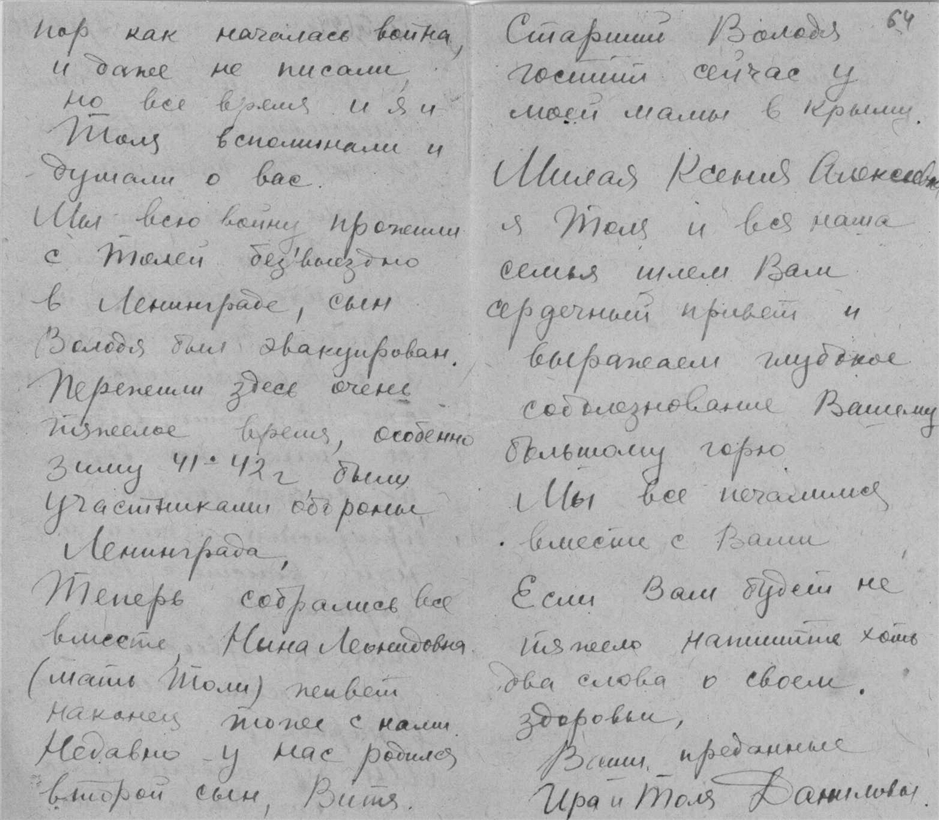 пор как началась война,
и даже не писали,
но все время и я и
Толя вспоминали и
думали о вас.
Мы всю войну прожили
с Толей безвыездно
в Ленинграде, сын
Володя был эвакуирован.
Пережили здесь очень
тяжелое время, особенно
зиму 41-42 г были
участниками обороны
Ленинграда,
Теперь собрались все
вместе, Нина Леонидовна
(мать Толи) живет
наконец тоже с нами.
Недавно у нас родился
второй сын, Витя.
64
Старший Володя
гостит сейчас у
моей мамы в Крыму.
Милая Ксения Алексеевна
я Толя и вся наша
семья шлем Вам
сердечный привет и
выражаем глубокое
соболезнование Вашему
большому горю
Мы все печалимся
вместе с Вами
Если Вам будет не
тяжело напишите хоть
два слова о своем
здоровьи,
Ваши преданные
Ира и Толя Даниловы.